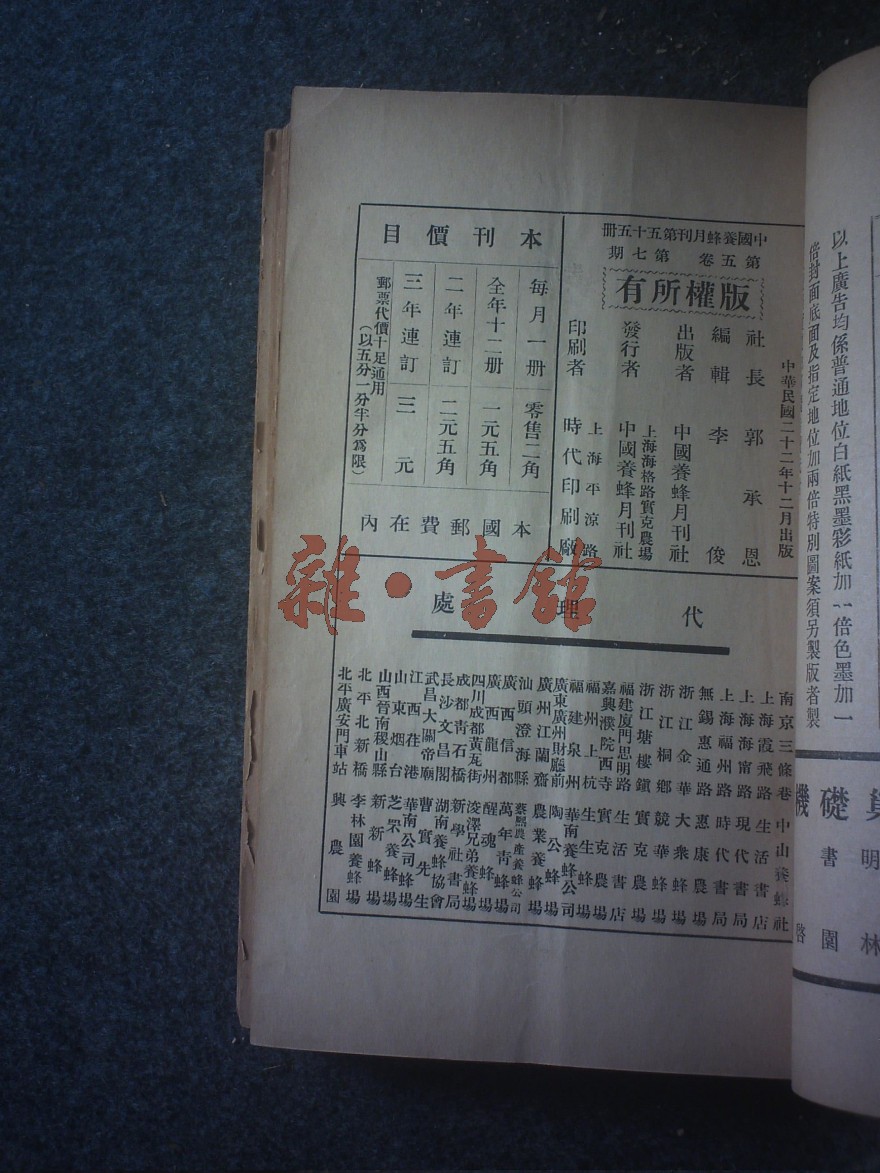 以上廣告均係普通地位白紙黑墨彩紙加一倍色墨加一
倍封面底面及指定地位加兩倍特別圖案須另製版者製
礎
明
書
林
園
啓
中國養蜂月刊第五十五冊
第五卷 第七期
版權所有
中華民國二十二年十二月出版
社長 郭承恩
編輯 李俊
出版者 中國養蜂月刊社
上海海格路實克農場
發行者 中國養蜂月刊社
上海平涼路
印刷者 時代印刷廠
本刊價目
每月一册 零售二角
全年十二册 一元五角
二年連訂 二元五角
三年連訂 三元
郵票代價十足通用
(以五分一分半分爲限)
本國郵費在內
代理處
南京三條巷 中山養蜂社
上海霞飛路 生活書店
上海海甯路 現代書局
上海福州路 時代書局
無錫惠通路 惠康農場
浙江金華 大衆蜂場
浙江桐鄉 競華蜂場
浙江塘棲鎭 實克農場
福建厦門思明路 生活書店
嘉興濮院西寺 實克農場
福州上杭 生生蜂場
福建泉州 華南養蜂公司
廣東廣州財廳前 陶公蜂場
廣州江蘭齋 農業養蜂場
汕頭澄海縣 蔡熙農產養蜂公司
廣西信都 萬年靑蜂場
廣西龍州 醒魂蜂場
四川成都黃瓦街 浚澤兄弟養蜂場
成都靑石橋 新學社書局
長沙文昌閣 湖南養蜂協會
武昌大關帝廟 曹實先生
江西荏港 華南公司蜂場
山東烟台 芝罘養蜂場
山西晉南稷山縣 新新蜂場
北平北新橋 李林園養蜂場
北平廣安門車站 興農園
雜·書館